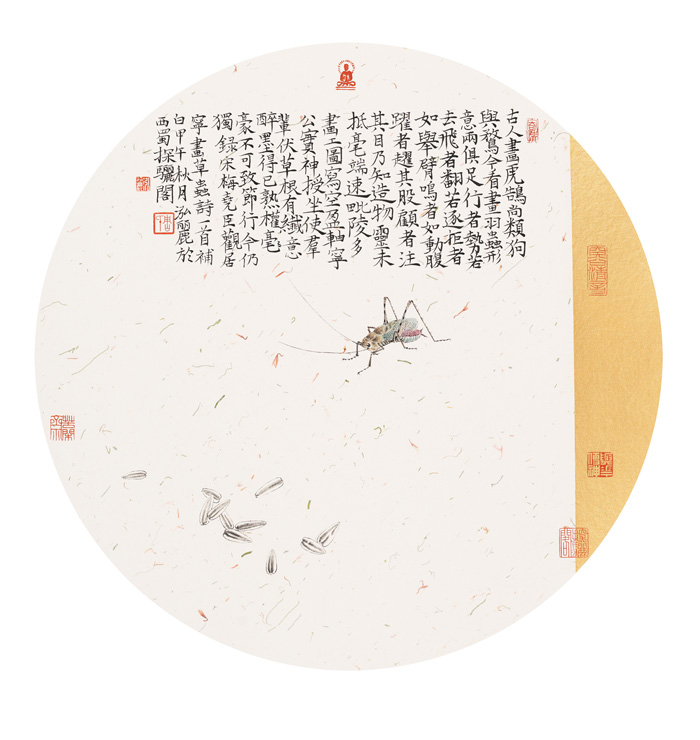 古人畫虎鵠尚類狗
與鶩今看畫羽蟲形
意兩俱足行者勢若
去飛者翻若逐拒者
如舉臂鳴者如動腹
躍者趯其股顧者注
其目乃知造物靈未
抵毫端速毗陵多
畫工圖寫空盈軸寧
公實神授坐使羣
輩伏草根有纖意
醉墨得已熟權毫
豪不可致節行今仍
獨錄宋梅堯臣觀居
寧畫草蟲詩一首補
白甲午秋月泓麗於
西蜀探驪閣